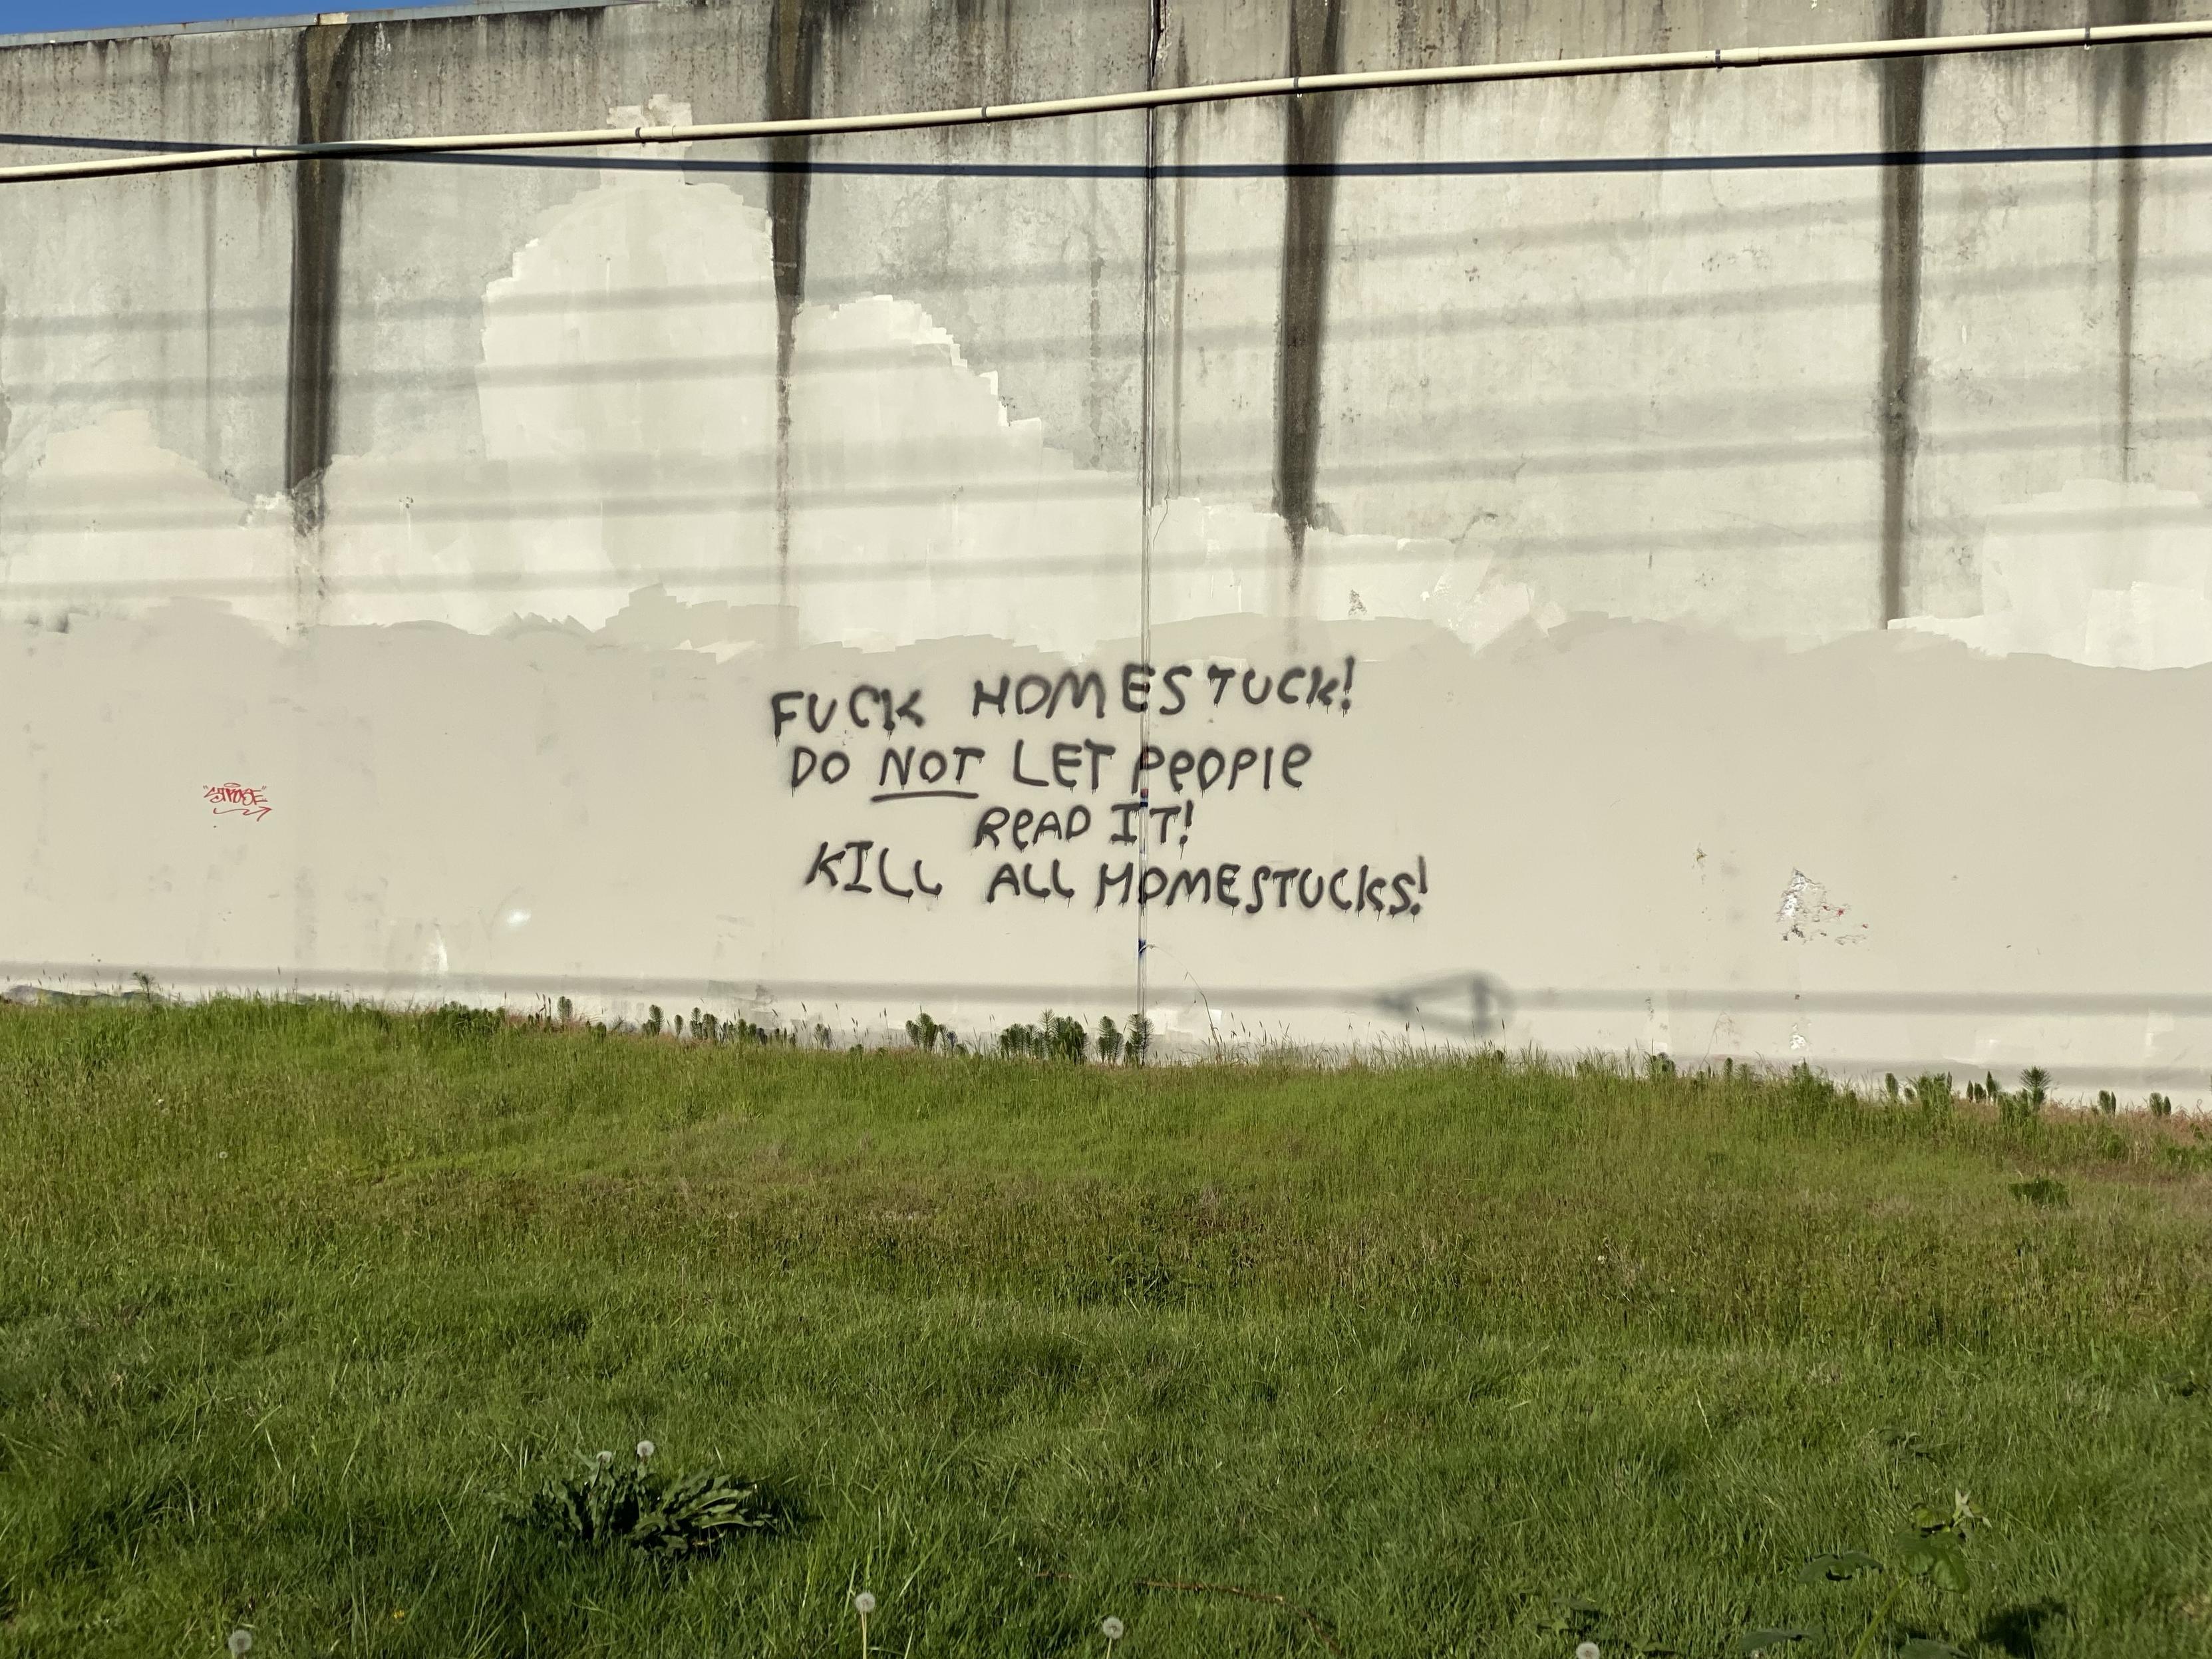 FUCK HOMESTUCK!
DO NOT LET PEOPlE
READ IT!
KILL ALL HOMESTUCKS!